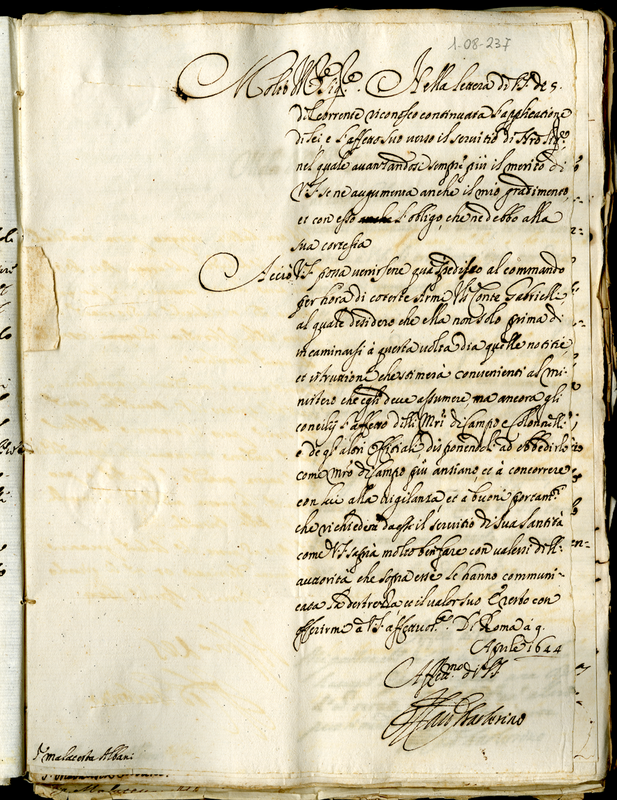 1-08-237
Molto Ill.re Sig.re. Nella lettera di V.S. de 5.
del corrente riconosco continuata l'applicatione
di lei e l'affetto suo verso il servitio di Nro Sig.re
nel quale avanzandosi sempre più il merito di
V.S. se ne augumenta anche il mio gradimento,
et con esso l'obligo, che ne debbo alla
sua cortesia
Acciò V.S. possa venirsene qua spedisco al commando
per hora di coteste armi il Conte Gabrielli
al quale desidero che ella non solo prima di
incaminarsi à questa volta dia quelle notitie,
et istruttione che stimerà convenienti al mi-
nistero che egli deve assumere ma ancora gli
concilij l'affetto delli Mri di Campo e Colonnelli
e de gl'altri Offitiali disponendoli ad obbedirlo
come Mro di Campo più antiano et à concorrere
con lui alla vigilanza et à buoni portam.ti
che richiederà da essi il servitio di Sua Santità
come V.S. saprà molto ben fare con valersi dell'
autorità che sopra essi le hanno communi-
cata la destrezza, et il valor suo E resto con
offerirme à V.S. affettuos.e Di Roma à 9.
Aprile 1644
Aff.mo di V.S.
Barberino
S.r Malatesta Albani